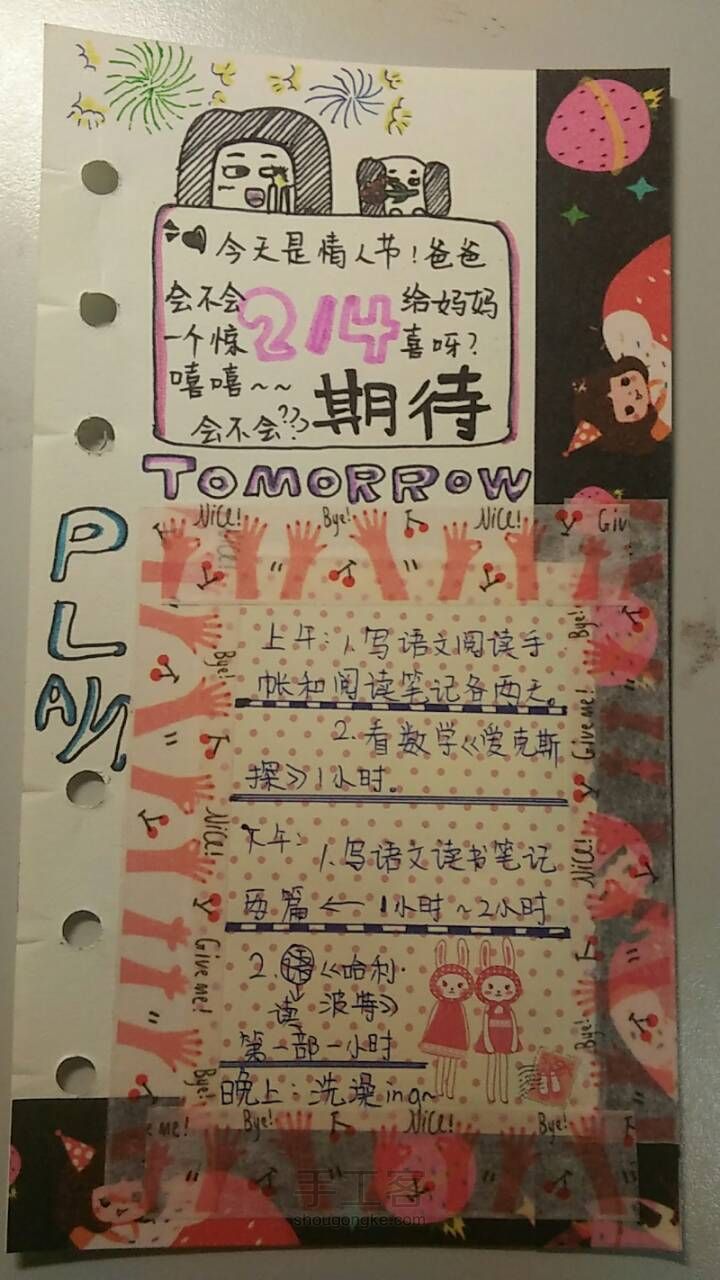 今天是情人节！爸爸
会不会 214 给妈妈
一个惊 喜呀？
嘻嘻~~
会不会?? 期待
TOMORROW
PLAN
Nice! Bye! Nice! Giv
上午：1.写语文阅读手
帐和阅读笔记各两天。
2.看数学《爱克斯
探》1小时。
下午：1.写语文读书笔记
两篇 ← 1小时~2小时
2.语《哈利·
读 波特》
第一部一小时
晚上：洗澡ing~
Bye!
Nice!
Give me!
Bye!
Bye!
Give me!
Nice!
Bye!
e me! Bye! Nice! Bye!
手工客
shougongke.com